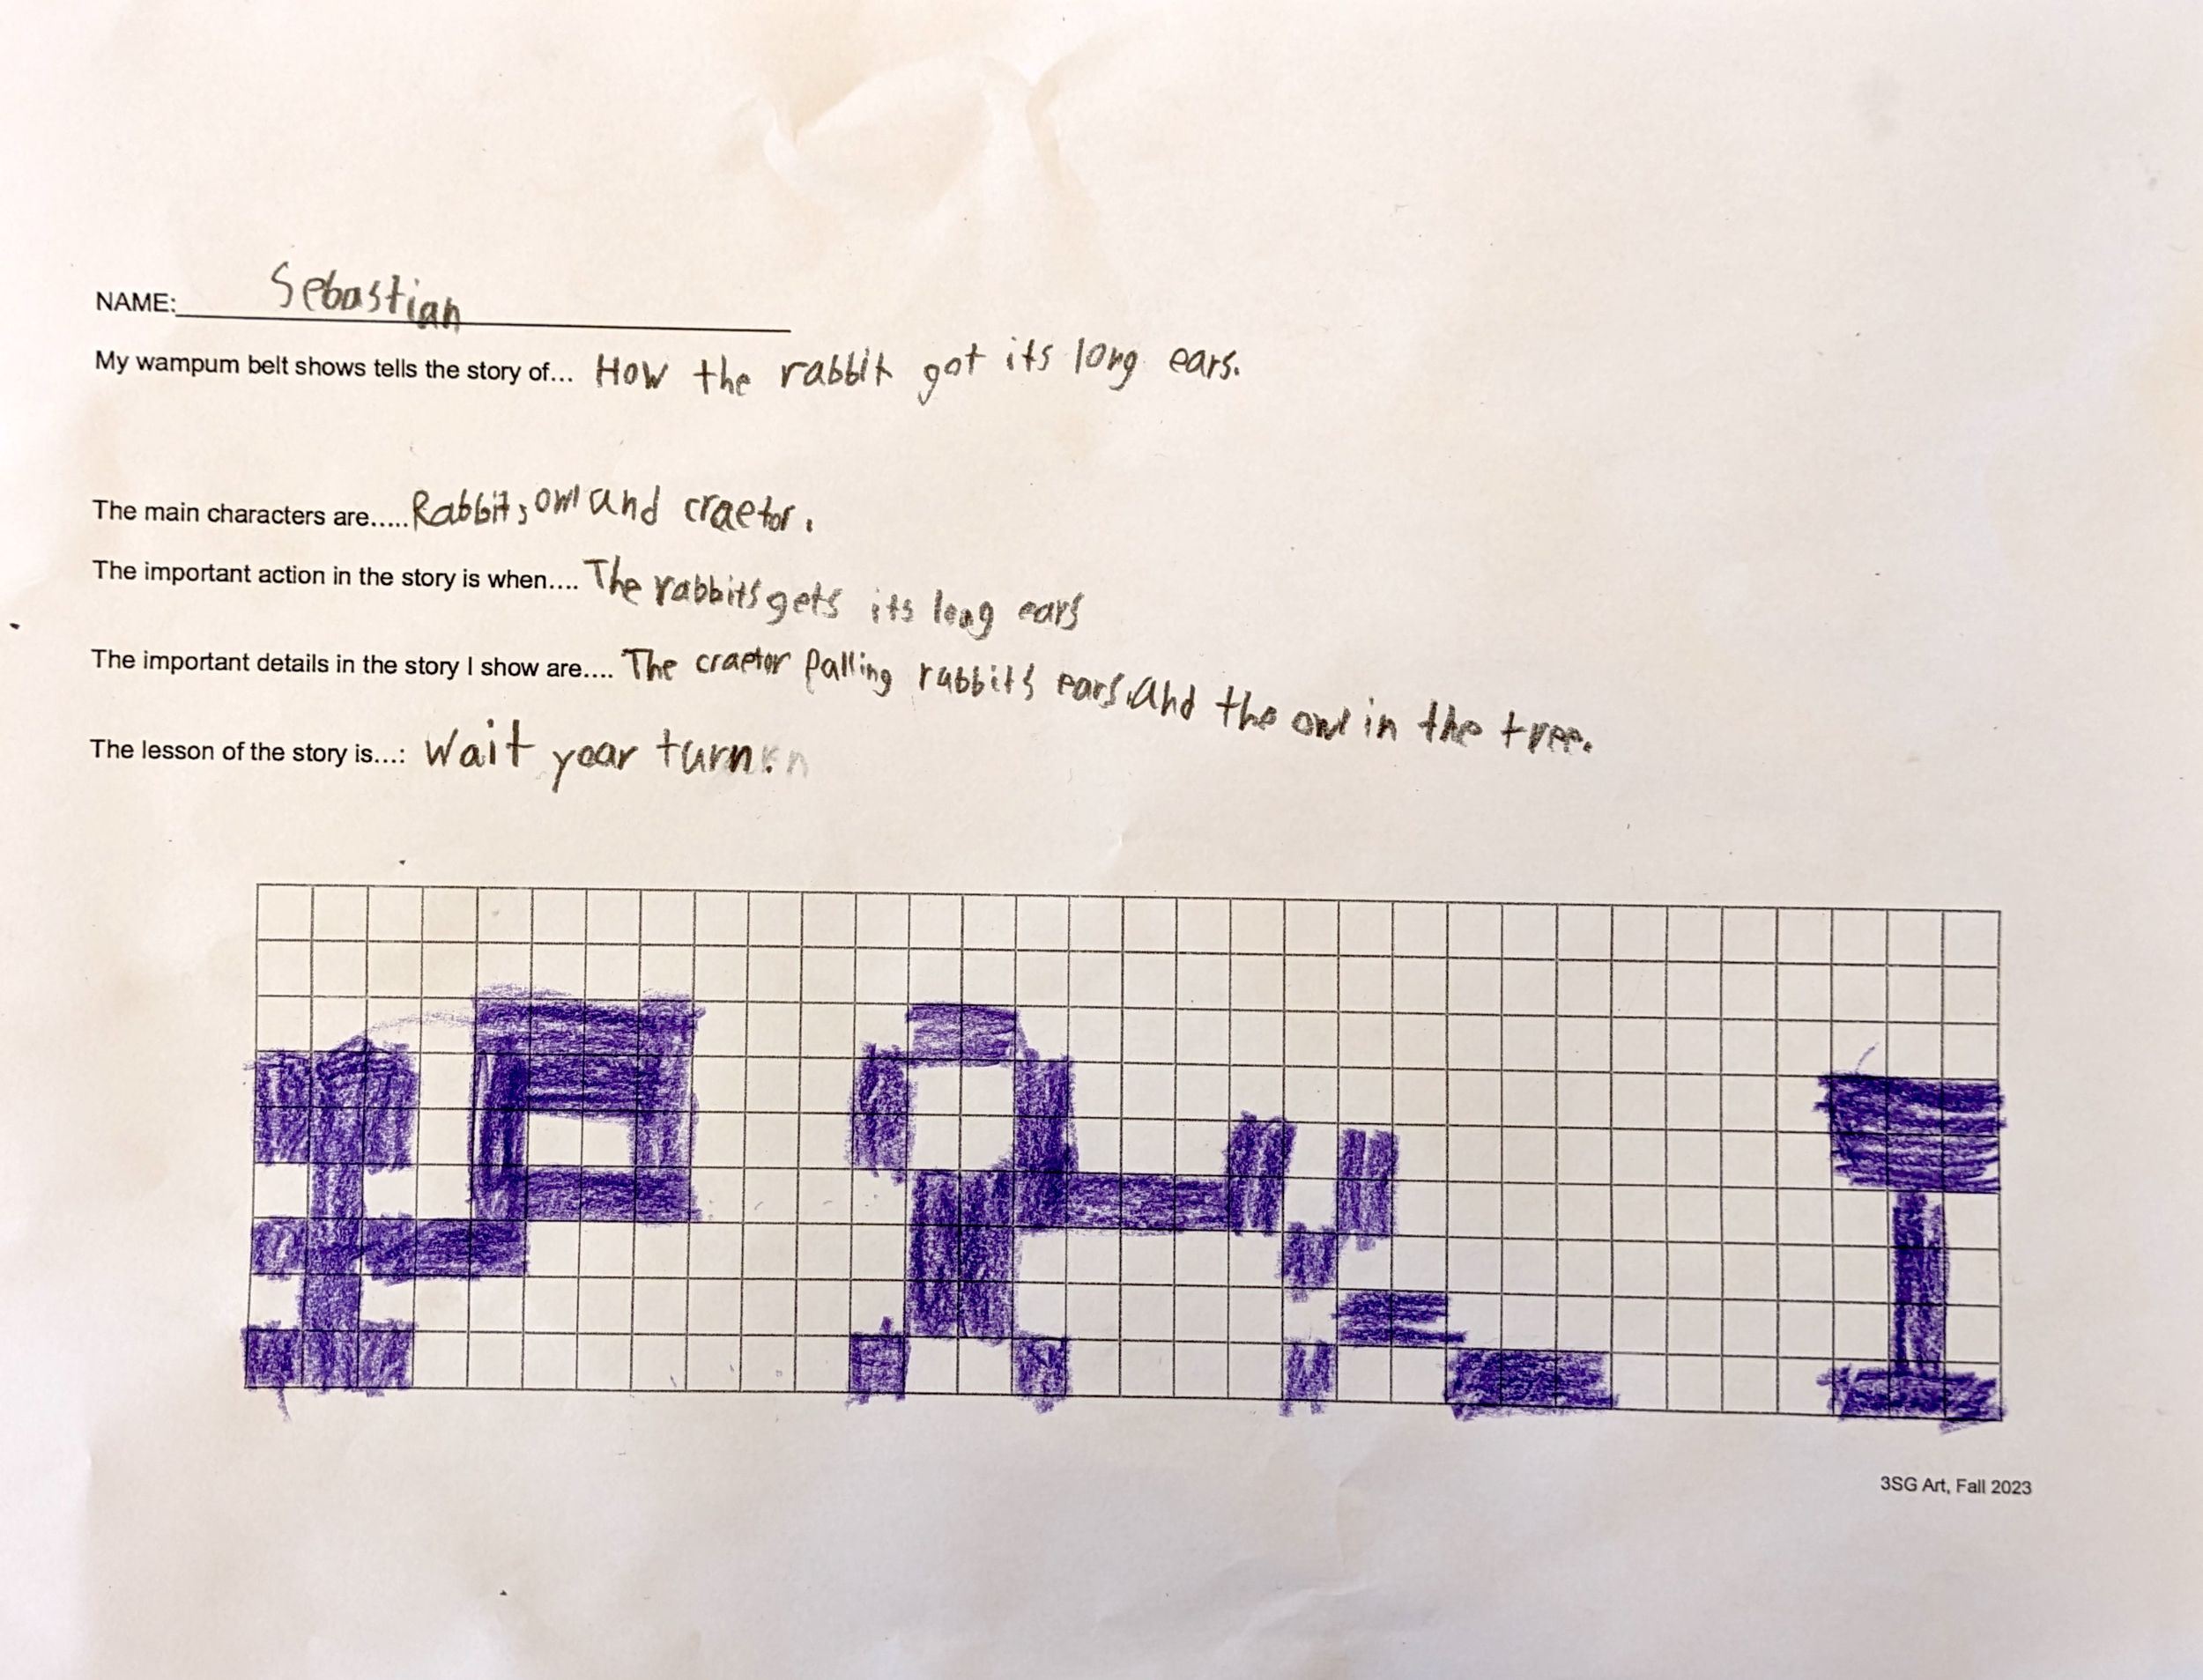 NAME: Sebastian
My wampum belt shows tells the story of... How the rabbit got its long ears.
The main characters are..... Rabbit, owl and craetor.
The important action in the story is when.... The rabbits gets its long ears
The important details in the story I show are.... The craetor palling rabbits ears. and the owl in the tree.
The lesson of the story is...: Wait year turn.
3SG Art, Fall 2023